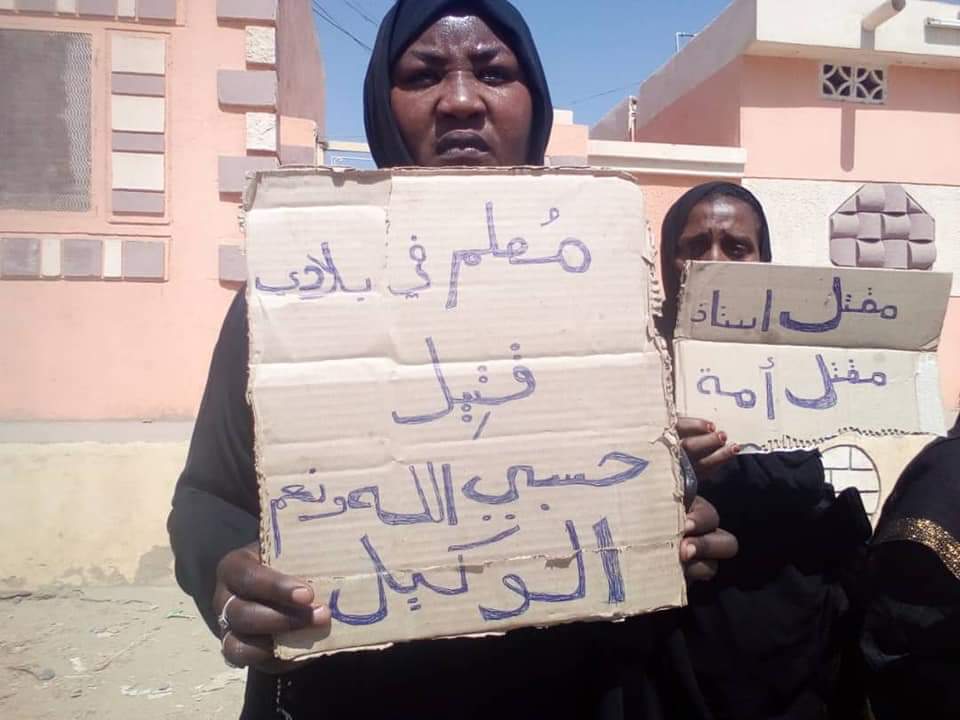 مُعلم في بلادي
قتِيل
حسبي الله ونعم
الوكيل
مقتل استاذ
مقتل أمة